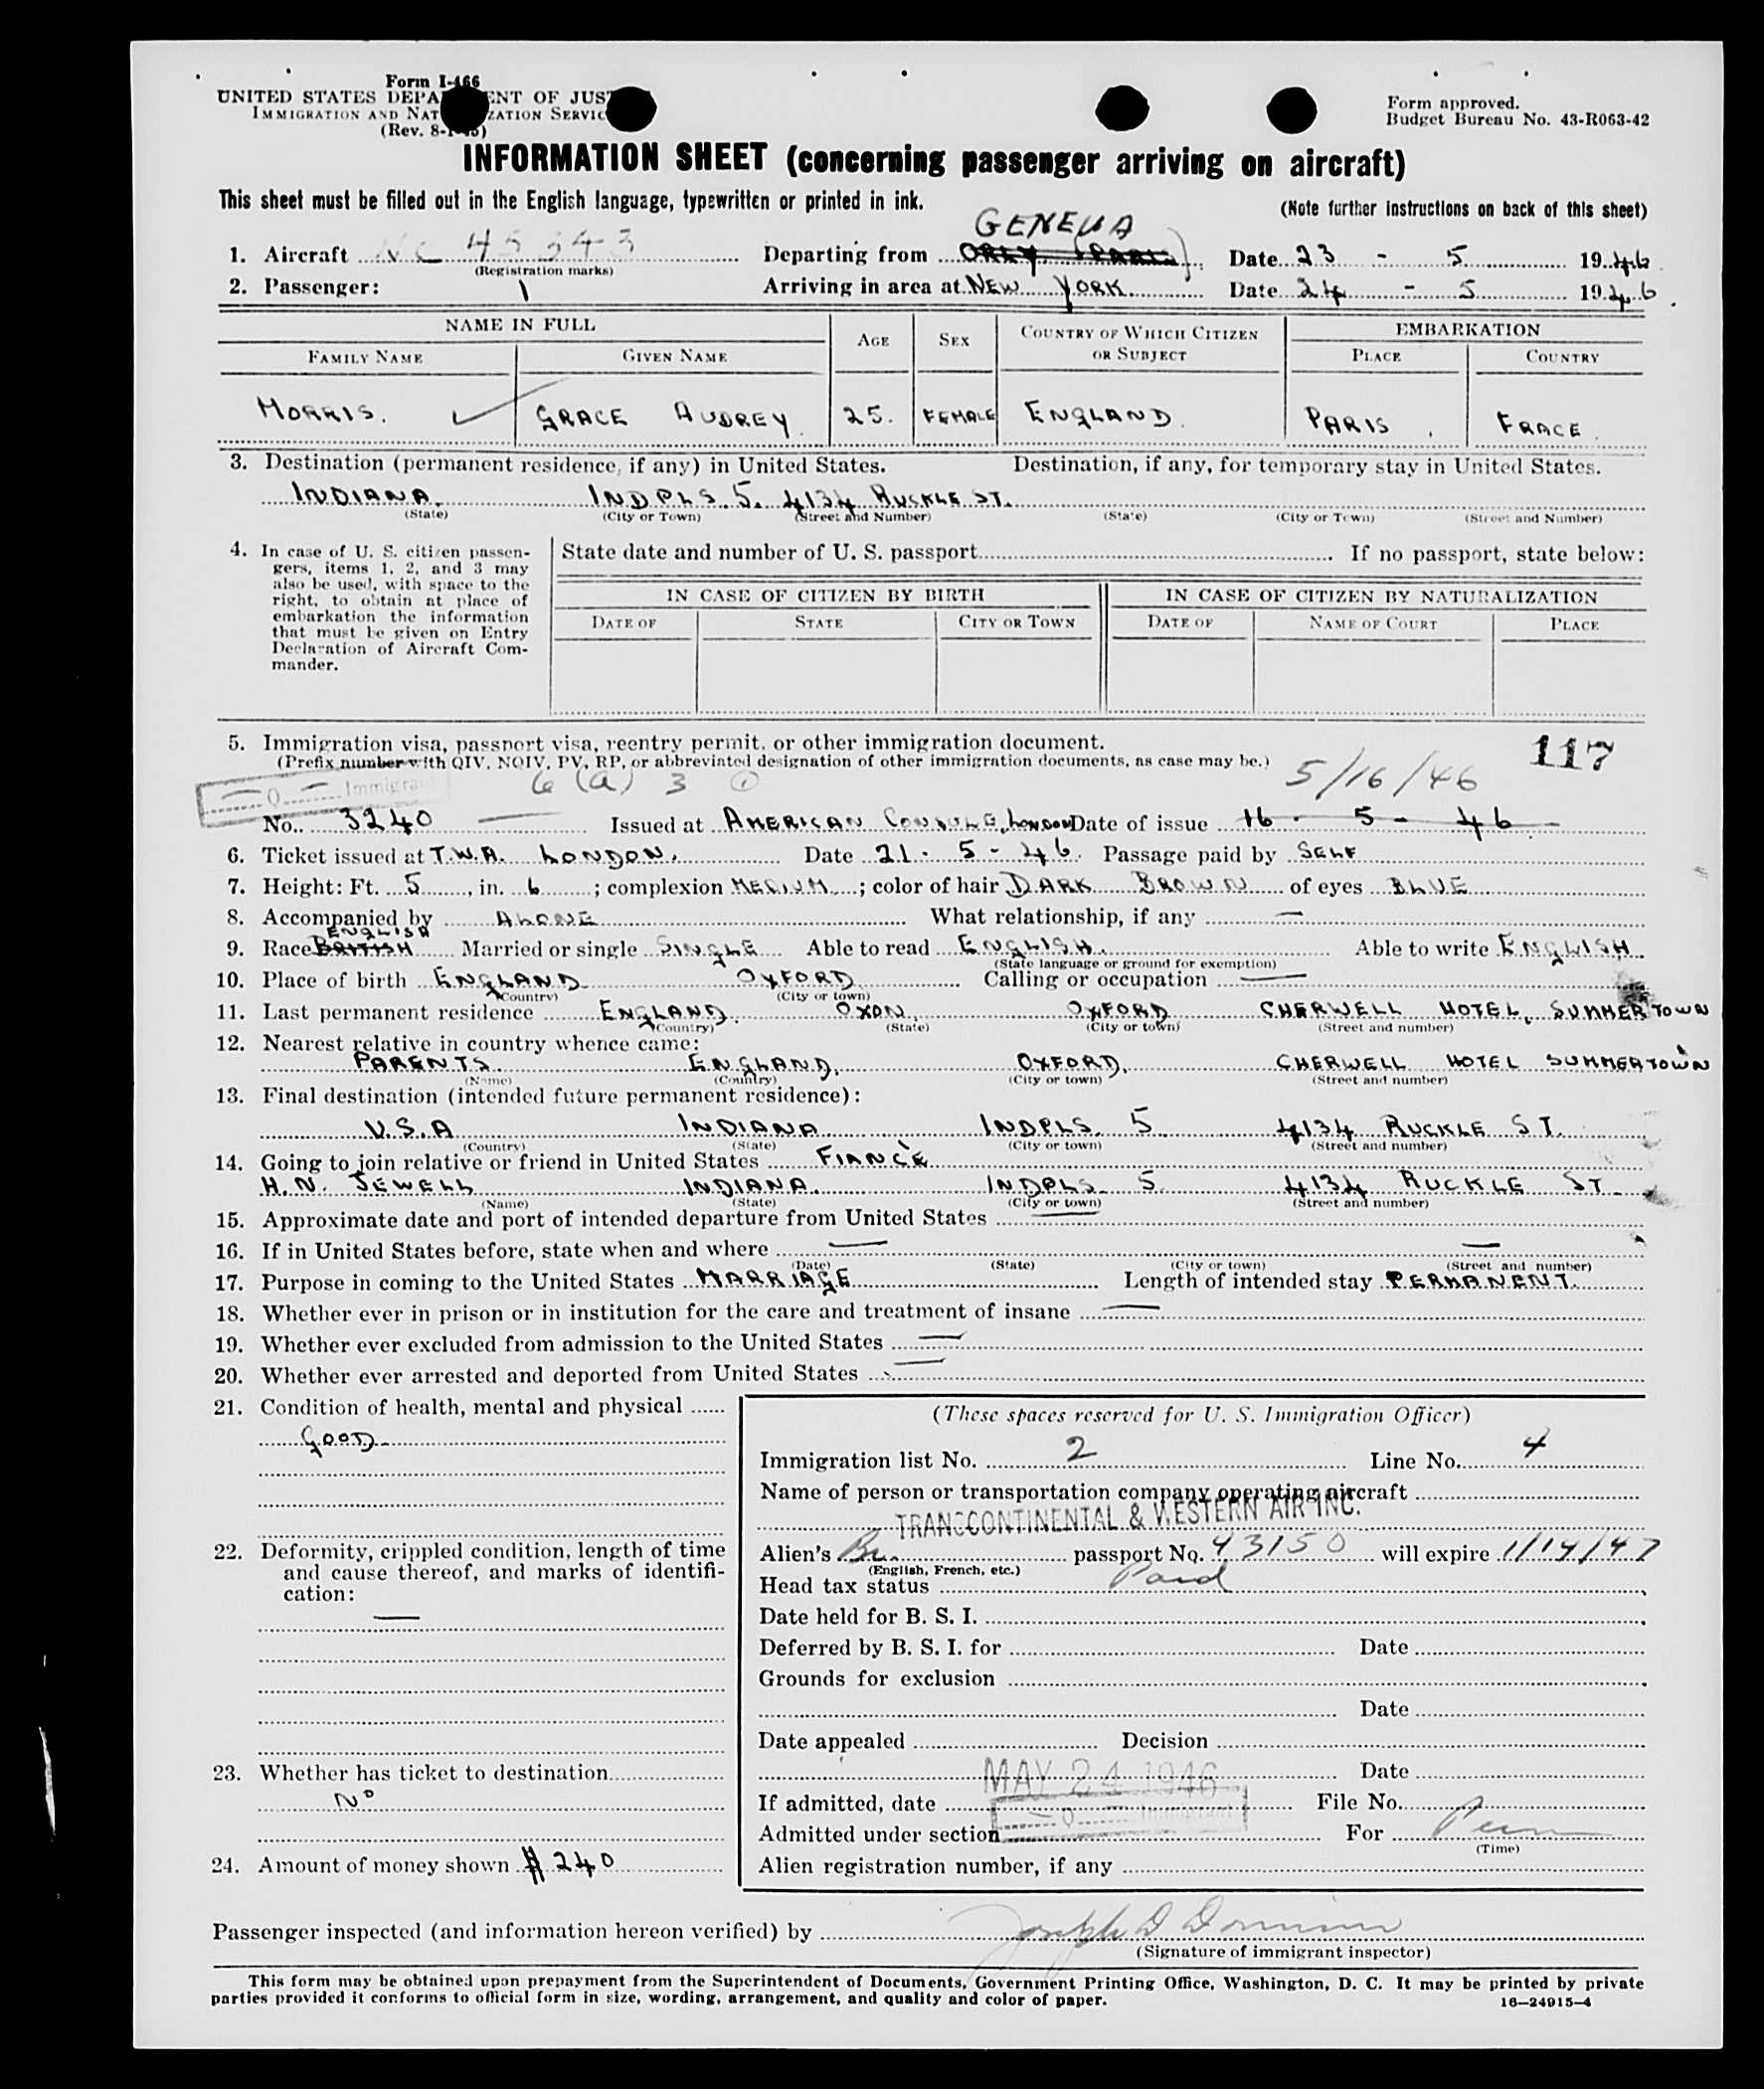 Form I-466
UNITED STATES DEPA ENT OF JUS
IMMIGRATION AND NAT ZATION SERVIC
(Rev. 8-1-45)
Form approved.
Budget Bureau No. 43-R063-42
INFORMATION SHEET (concerning passenger arriving on aircraft)
This sheet must be filled out in the English language, typewritten or printed in ink.
(Note further instructions on back of this sheet)
GENEVA
1. Aircraft NC 45343 Departing from ORLY (PARIS) Date 23 - 5 1946
(Registration marks)
2. Passenger: 1 Arriving in area at NEW YORK Date 24 - 5 1946
NAME IN FULL AGE SEX COUNTRY OF WHICH CITIZEN OR SUBJECT EMBARKATION
FAMILY NAME GIVEN NAME PLACE COUNTRY
MORRIS. GRACE AUDREY. 25. FEMALE ENGLAND. PARIS, FRACE.
3. Destination (permanent residence, if any) in United States. Destination, if any, for temporary stay in United States.
INDIANA. INDPLS. 5. 4134 RUCKLE ST.
(State) (City or Town) (Street and Number) (State) (City or Town) (Street and Number)
4. In case of U. S. citizen passen-
gers, items 1, 2, and 3 may
also be used, with space to the
right, to obtain at place of
embarkation the information
that must be given on Entry
Declaration of Aircraft Com-
mander.
State date and number of U. S. passport If no passport, state below:
IN CASE OF CITIZEN BY BIRTH IN CASE OF CITIZEN BY NATURALIZATION
DATE OF STATE CITY OR TOWN DATE OF NAME OF COURT PLACE
5. Immigration visa, passport visa, reentry permit, or other immigration document.
(Prefix number with QIV, NQIV, PV, RP, or abbreviated designation of other immigration documents, as case may be.)
117
- Q - Immigrant 6 (a) 3 1 5/16/46
No. 3240 Issued at AMERICAN CONSULE, LONDON Date of issue 16 - 5 - 46
6. Ticket issued at T.W.A. LONDON. Date 21 - 5 - 46. Passage paid by SELF
7. Height: Ft. 5, in. 6; complexion MEDIUM; color of hair DARK BROWN of eyes BLUE
8. Accompanied by ALONE What relationship, if any —
ENGLISH
9. Race BRITISH Married or single SINGLE Able to read ENGLISH. Able to write ENGLISH.
(State language or ground for exemption)
10. Place of birth ENGLAND OXFORD Calling or occupation —
(Country) (City or town)
11. Last permanent residence ENGLAND. OXON. OXFORD CHERWELL HOTEL, SUMMERTOWN
(Country) (State) (City or town) (Street and number)
12. Nearest relative in country whence came:
PARENTS. ENGLAND. OXFORD. CHERWELL HOTEL SUMMERTOWN
(Name) (Country) (City or town) (Street and number)
13. Final destination (intended future permanent residence):
U.S.A INDIANA INDPLS. 5 4134 RUCKLE ST.
(Country) (State) (City or town) (Street and number)
14. Going to join relative or friend in United States FIANCÈ
H.N. JEWELL INDIANA. INDPLS. 5. 4134 RUCKLE ST
(Name) (State) (City or town) (Street and number)
15. Approximate date and port of intended departure from United States —
16. If in United States before, state when and where — —
(Date) (State) (City or town) (Street and number)
17. Purpose in coming to the United States MARRIAGE Length of intended stay PERMANENT.
18. Whether ever in prison or in institution for the care and treatment of insane —
19. Whether ever excluded from admission to the United States —
20. Whether ever arrested and deported from United States —
21. Condition of health, mental and physical
GOOD
22. Deformity, crippled condition, length of time
and cause thereof, and marks of identifi-
cation:
—
23. Whether has ticket to destination
No
24. Amount of money shown $240
(These spaces reserved for U. S. Immigration Officer)
Immigration list No. 2 Line No. 4
Name of person or transportation company operating aircraft
TRANSCONTINENTAL & WESTERN AIR INC.
Alien's Br. passport No. 43150 will expire 1/14/47
(English, French, etc.)
Head tax status Paid
Date held for B. S. I.
Deferred by B. S. I. for Date
Grounds for exclusion
Date
Date appealed Decision
MAY 24 1946 Date
If admitted, date File No.
- Q - Immigrant
Admitted under section For Perm
(Time)
Alien registration number, if any
Passenger inspected (and information hereon verified) by Joseph D
(Signature of immigrant inspector)
This form may be obtained upon prepayment from the Superintendent of Documents, Government Printing Office, Washington, D. C. It may be printed by private
parties provided it conforms to official form in size, wording, arrangement, and quality and color of paper.
16—24915-4